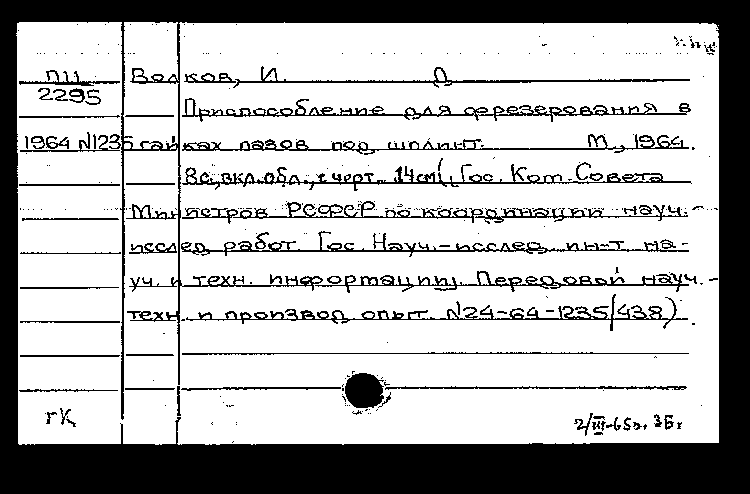 ПЦ Волков, И. Д
2295 Приспособление для фрезерования в
1964 N1235 гайках пазов под шплинт. М., 1964.
8с., вкл. обл., с черт. 14см (Гос. Ком. Совета
Министров РСФСР по координации науч.-
исслед. работ. Гос. Науч.-исслед. ин-т на-
уч. и техн. информации. Передовой науч.-
техн. и производ. опыт. N24-64-1235/438).
гк
2/III-65г. 3Б.